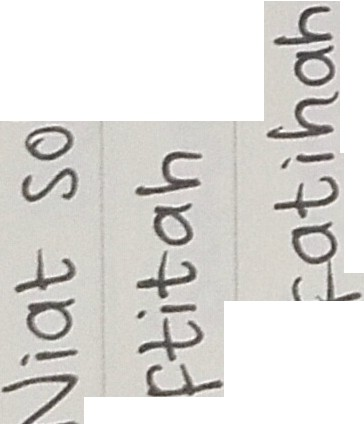 Niat so
ftitah
Fatihah